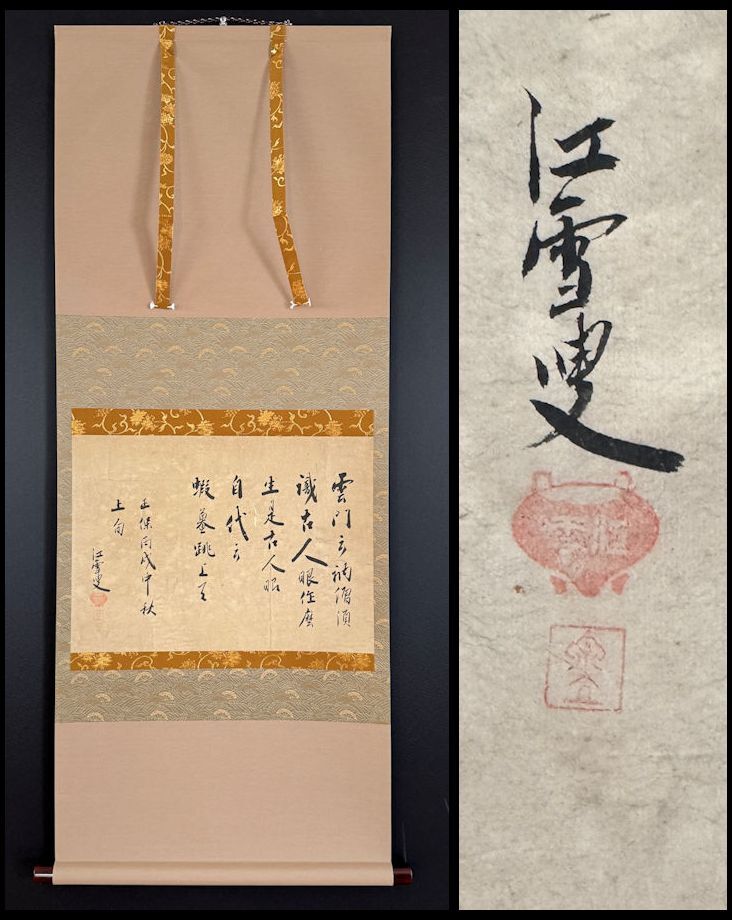 雲門云衲僧須
識古人眼作麼
生是古人眼
自代云
蝦蟇跳上天
正保丙戌中秋
上旬
江雪叟
江雪叟
江雪